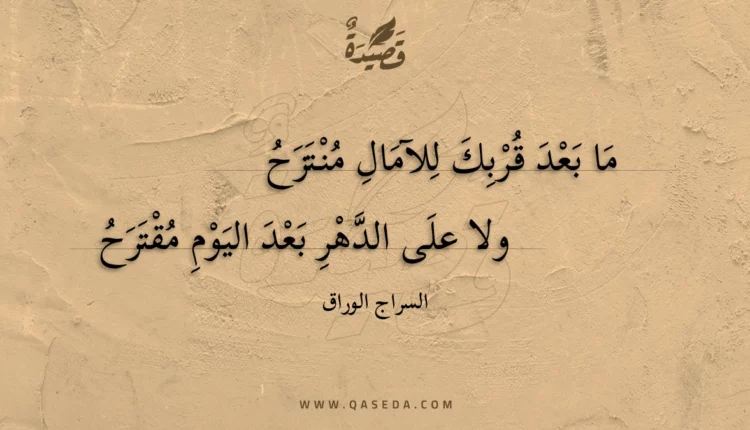 قَصِيدَةٌ
مَا بَعْدَ قُرْبِكَ لِلآمَالِ مُنْتَزَحُ
ولا علَى الدَّهْرِ بَعْدَ اليَوْمِ مُقْتَرَحُ
السراج الوراق
WWW.QASEDA.COM